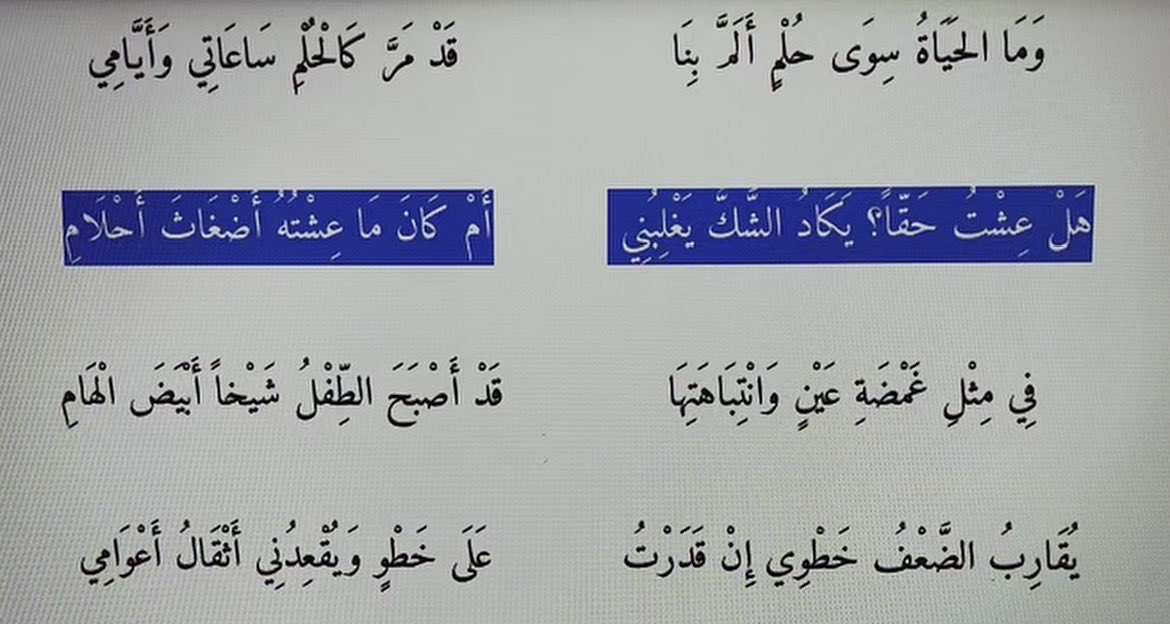 وَمَا الحَيَاةُ سِوَى حُلْمٍ أَلَمَّ بِنَا قَدْ مَرَّ كَالْحُلْمِ سَاعَاتِي وَأَيَّامِي
هَلْ عِشْتُ حَقّاً؟ يَكَادُ الشَّكُّ يَغْلِبُنِي أَمْ كَانَ مَا عِشْتُهُ أَضْغَاثَ أَحْلَامِ
فِي مِثْلِ غَمْضَةِ عَيْنٍ وَانْتِبَاهَتِهَا قَدْ أَصْبَحَ الطِّفْلُ شَيْخاً أَبْيَضَ الْهَامِ
يُقَارِبُ الضَّعْفُ خَطْوِي إِنْ قَدَرْتُ عَلَى خَطْوٍ وَيُقْعِدُنِي أَثْقَالُ أَعْوَامِي